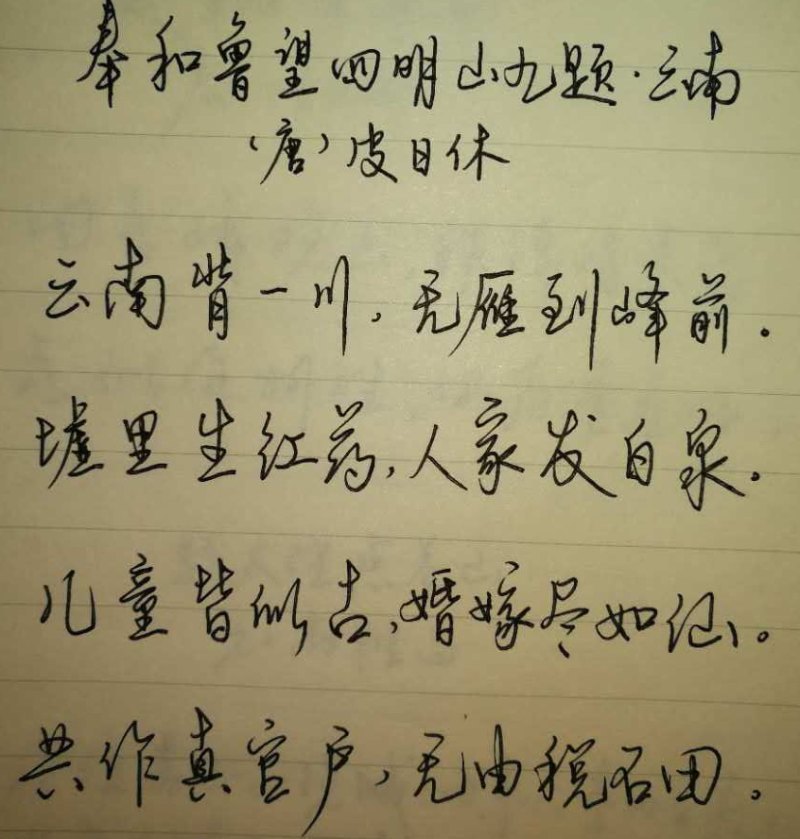 奉和鲁望四明山九题·云南
（唐）皮日休
云南背一川，无雁到峰前。
墟里生红药，人家发白泉。
儿童皆似古，婚嫁尽如仙。
共作真官户，无由税石田。